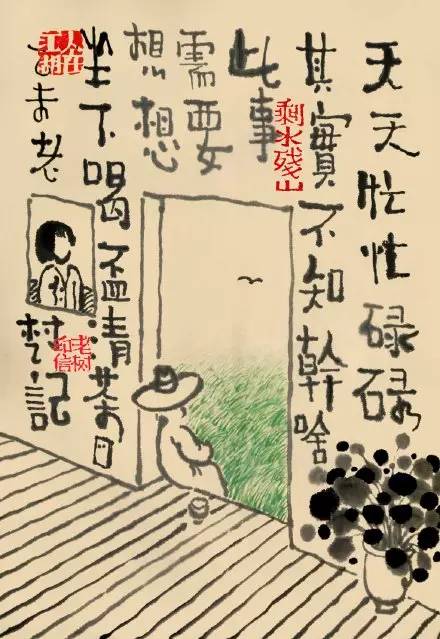 天天忙忙碌碌
其實不知幹啥
剩水殘山
此事
需要
想想
坐下喝盃清茶
人在江湖
未老
記
老树印信